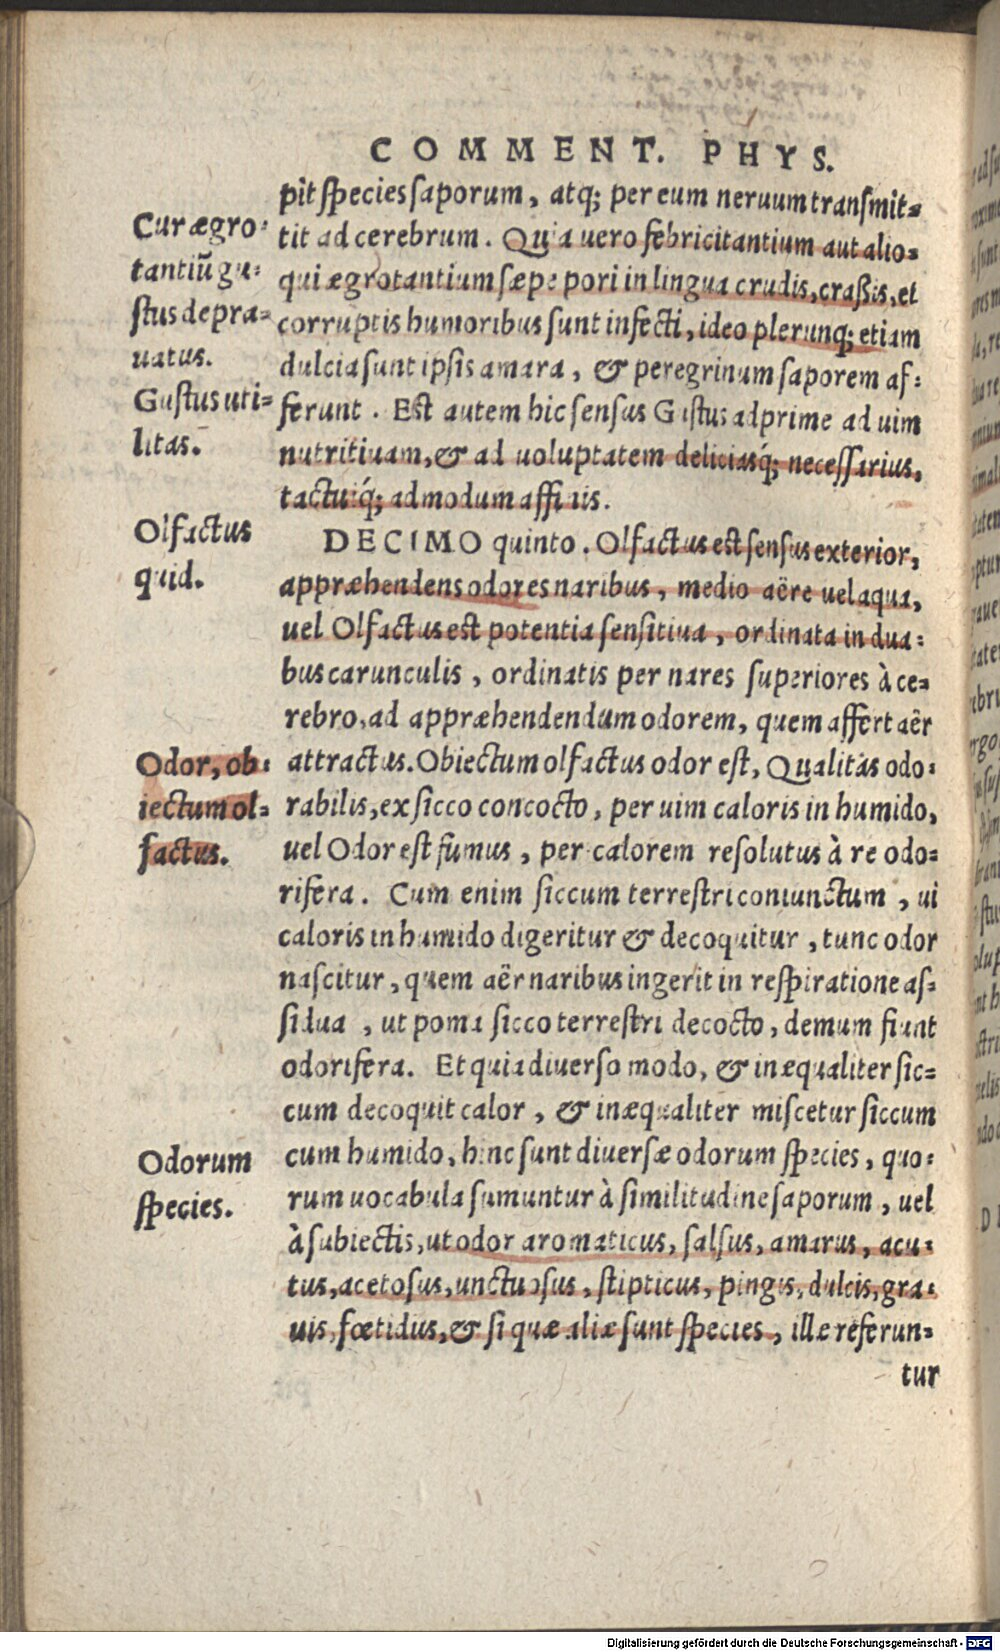 COMMENT. PHYS.
pit species saporum, atq; per eum neruum transmit-
tit ad cerebrum. Quia uero febricitantium aut alio-
qui ægrotantium sæpe pori in lingua crudis, craßis, et
corruptis humoribus sunt infecti, ideo plerunq; etiam
dulcia sunt ipsis amara, & peregrinum saporem af-
ferunt. Est autem hic sensus Gustus adprime ad uim
nutritiuam, & ad uoluptatem deliciasq́; necessarius,
tactuiq́; admodum affinis.
Cur ægro-
tantiũ gu-
stus depra-
uatus.
Gustus uti-
litas.
DECIMO quinto. Olfactus est sensus exterior,
appræhendens odores naribus, medio aëre uel aqua,
uel Olfactus est potentia sensitiua, ordinata in dua-
bus carunculis, ordinatis per nares superiores à ce-
rebro, ad appræhendendum odorem, quem affert aër
attractus. Obiectum olfactus odor est, Qualitas odo-
rabilis, ex sicco concocto, per uim caloris in humido,
uel Odor est fumus, per calorem resolutus à re odo-
rifera. Cum enim siccum terrestri coniunctum, ui
caloris in humido digeritur & decoquitur, tunc odor
nascitur, quem aër naribus ingerit in respiratione as-
sidua, ut poma sicco terrestri decocto, demum fiunt
odorifera. Et quia diuerso modo, & inæqualiter sic-
cum decoquit calor, & inæqualiter miscetur siccum
cum humido, hinc sunt diuersæ odorum species, quo-
rum uocabula sumuntur à similitudine saporum, uel
à subiectis, ut odor aromaticus, salsus, amarus, acu-
tus, acetosus, unctuosus, stipticus, pingis, dulcis, gra-
uis, fœtidus, & si quæ aliæ sunt species, illæ referun-
tur
Olfactus
quid.
Odor, ob-
iectum ol-
factus.
Odorum
species.
Digitalisierung gefördert durch die Deutsche Forschungsgemeinschaft - DFG